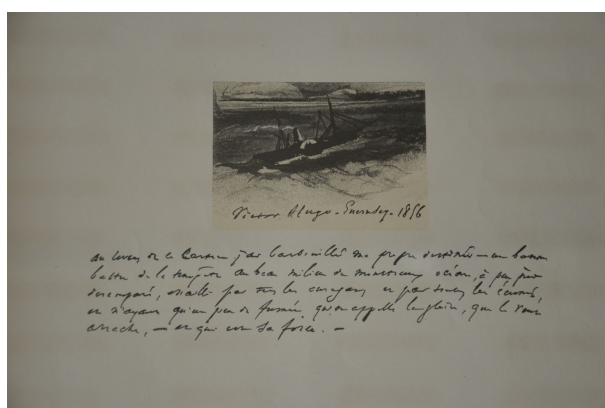 Victor Hugo - Guernesey - 1856
au revers de la Carte j'ai barbouillé ma propre destinée — un bateau
battu de la tempête au beau milieu du monstrueux océan, à peu près
désemparé, assailli par tous les ouragans et par toutes les écumes,
et n'ayant qu'un peu de fumée, qu'on appelle la gloire, que le vent
arrache, — et qui est sa force. —